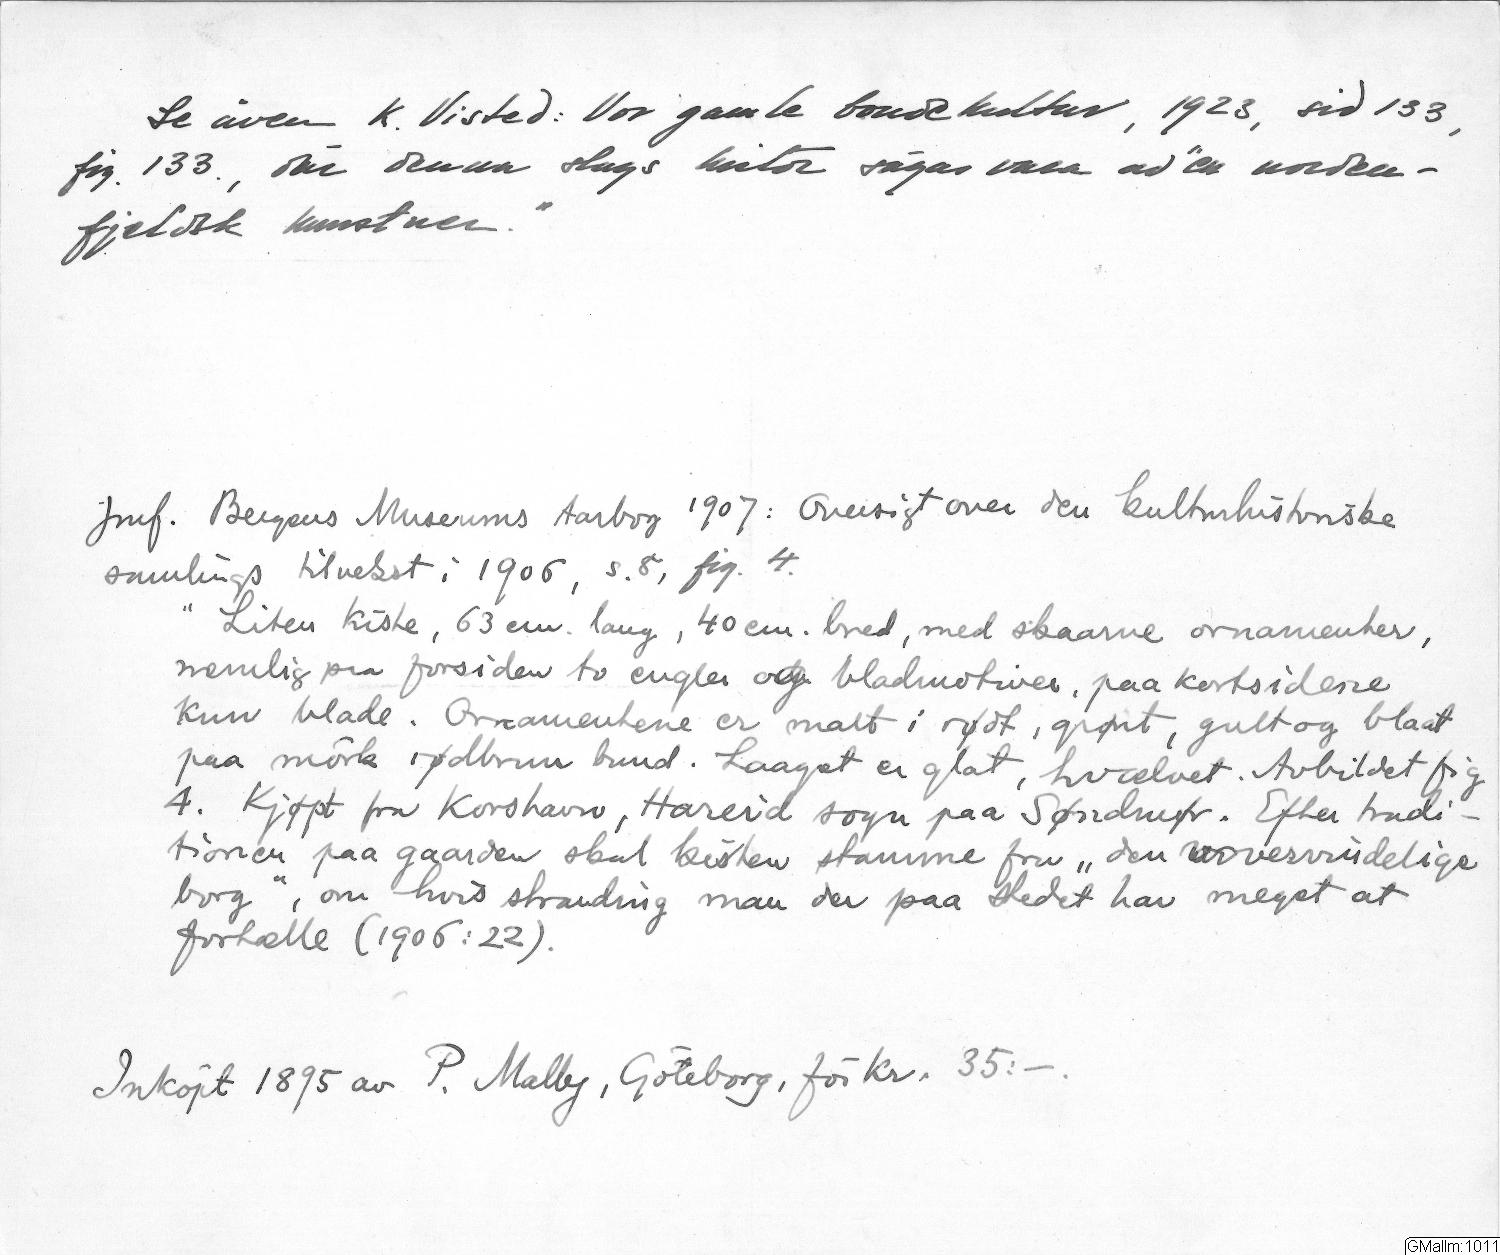 Se även K. Visted: Vor gamle bondekultur, 1923, sid 133,
fig. 133., där denna slags kistor sägas vara av "en norden-
fjeldsk kunstner."
Jmf. Bergens Museums Aarbog 1907: Oversigt over den kulturhistoriske
samlings tilvekst i 1906, s. 8, fig. 4.
"Liten kiste, 63 cm. lang, 40 cm. bred, med skaarne ornamenter,
nemlig paa forsiden to engler og bladmotiver, paa kortsidene
kun blade. Ornamentene er malt i rødt, grønt, gult og blaat
paa mörk rødbrun bund. Laaget er glat, hvælvet. Avbildet fig
4. Kjøpt fra Korshavn, Hareid sogn paa Søndmør. Efter tradi-
tionen paa gaarden skal kisten stamme fra „den uovervindelige
borg", om hvis stranding man der paa stedet har meget at
fortælle (1906:22).
Inköpt 1895 av P. Malby, Göteborg, för kr. 35:-.
GMallm:1011